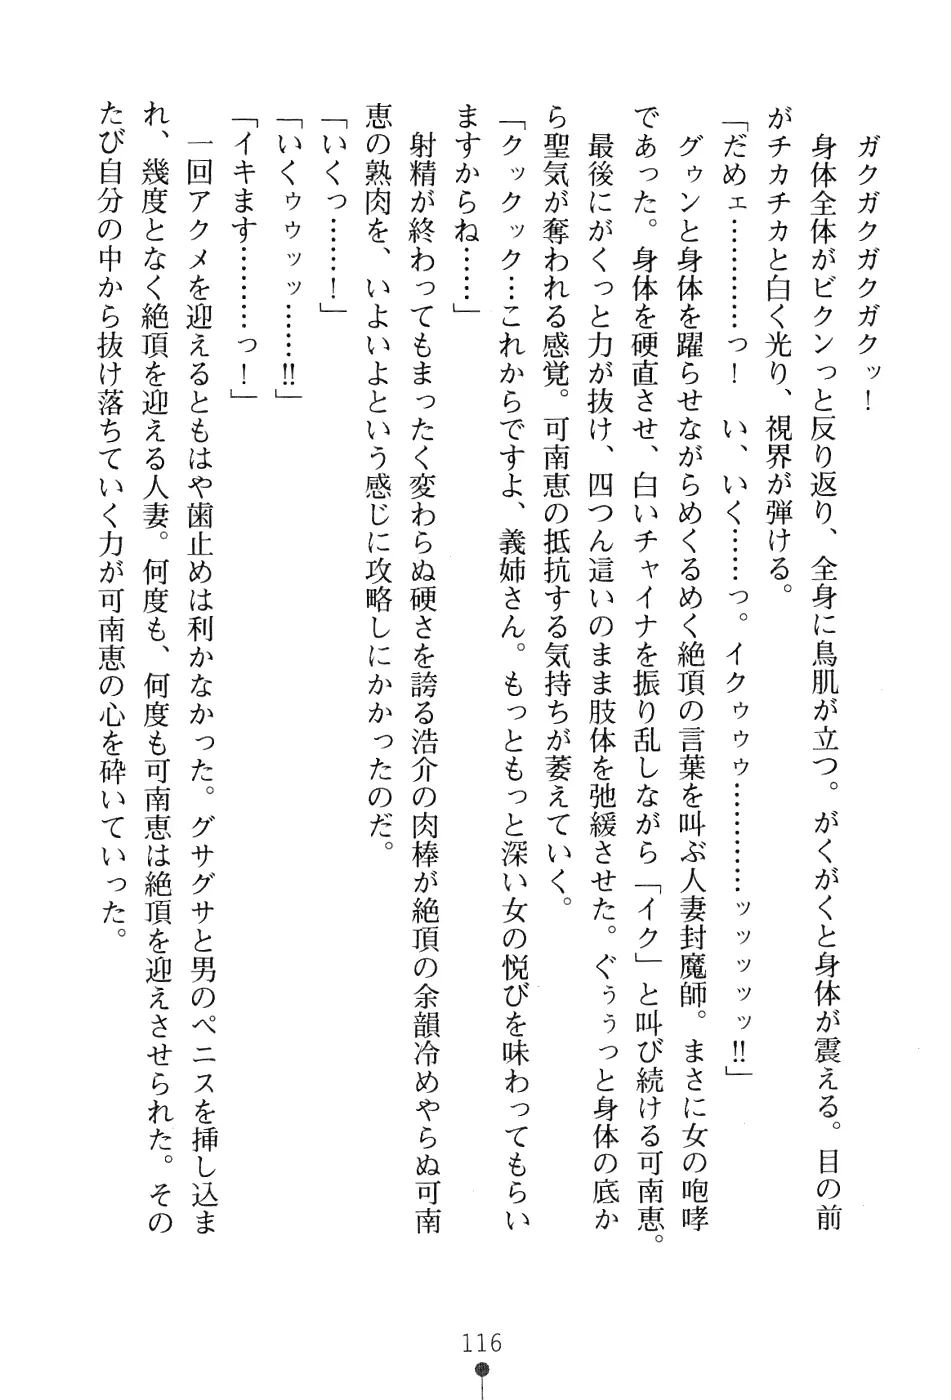 ガクガクガクガクッ！
身体全体がビクンっと反り返り、全身に鳥肌が立つ。がくがくと身体が震える。目の前
がチカチカと白く光り、視界が弾ける。
「だめェ…………っ！　い、いく……っ。イクゥゥゥ…………ッッッッッ!!」
グゥンと身体を躍らせながらめくるめく絶頂の言葉を叫ぶ人妻封魔師。まさに女の咆哮
であった。身体を硬直させ、白いチャイナを振り乱しながら「イク」と叫び続ける可南恵。
最後にがくっと力が抜け、四つん這いのまま肢体を弛緩させた。ぐぅぅっと身体の底か
ら聖気が奪われる感覚。可南恵の抵抗する気持ちが萎えていく。
「クックック…これからですよ、義姉さん。もっともっと深い女の悦びを味わってもらい
ますからね……」
射精が終わってもまったく変わらぬ硬さを誇る浩介の肉棒が絶頂の余韻冷めやらぬ可南
恵の熟肉を、いよいよという感じに攻略しにかかったのだ。
「いくっ……！」
「いくゥゥッッ……!!」
「イキます………っ！」
一回アクメを迎えるともはや歯止めは利かなかった。グサグサと男のペニスを挿し込ま
れ、幾度となく絶頂を迎える人妻。何度も、何度も可南恵は絶頂を迎えさせられた。その
たび自分の中から抜け落ちていく力が可南恵の心を砕いていった。
116